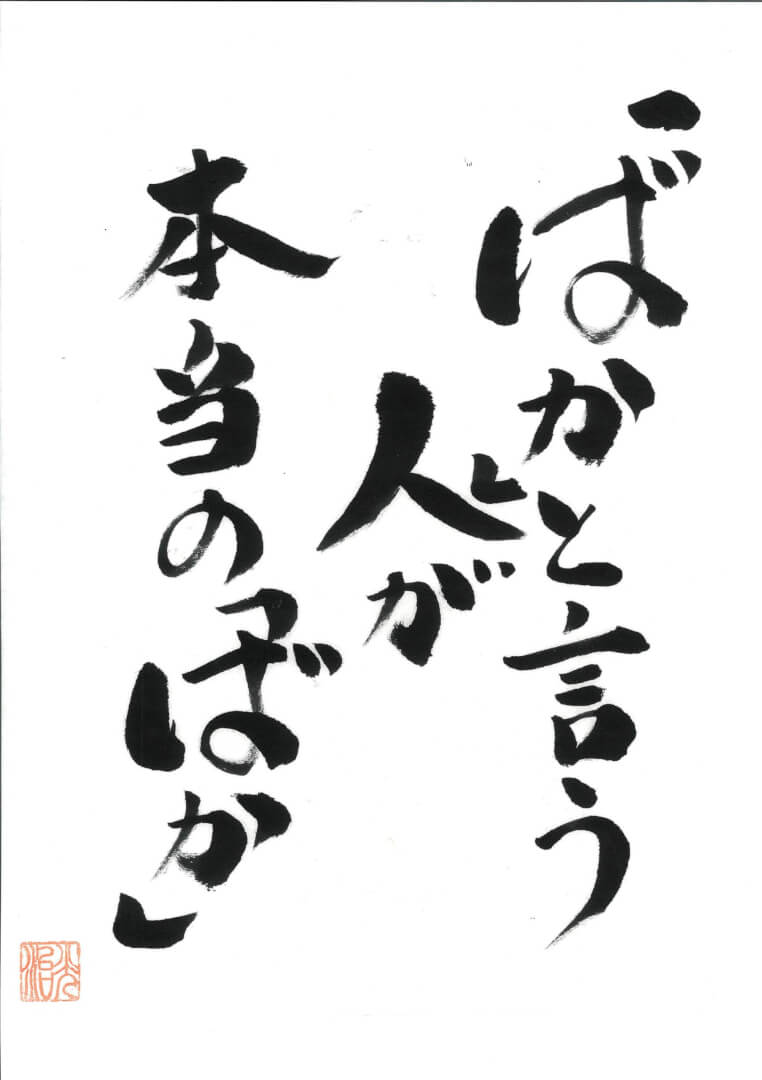 「ばか」と言う
人が
本当の「ばか」